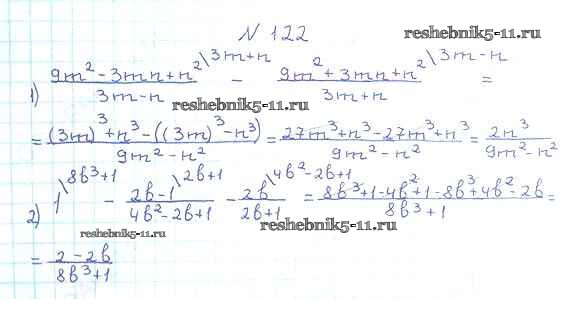 № 122
reshebnik5-11.ru
1) (9m² - 3mn + n²)/(3m - n) \3m+n - (9m² + 3mn + n²)/(3m + n) \3m-n =
reshebnik5-11.ru
= ((3m)³ + n³ - ((3m)³ - n³))/(9m² - n²) = (27m³ + n³ - 27m³ + n³)/(9m² - n²) = 2n³/(9m² - n²)
2) 1 \8b³+1 - (2b-1)/(4b² - 2b + 1) \2b+1 - 2b/(2b+1) \4b²-2b+1 = (8b³ + 1 - 4b² + 1 - 8b³ + 4b² - 2b)/(8b³ + 1) =
reshebnik5-11.ru
reshebnik5-11.ru
= (2 - 2b)/(8b³ + 1)